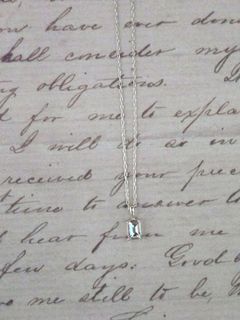 ow have ever don
hall consider my
ng obligations. I
d for me to expla
I will do so in
received your prec
time to answer to
hear from me
few days: Good
ve me still to be,